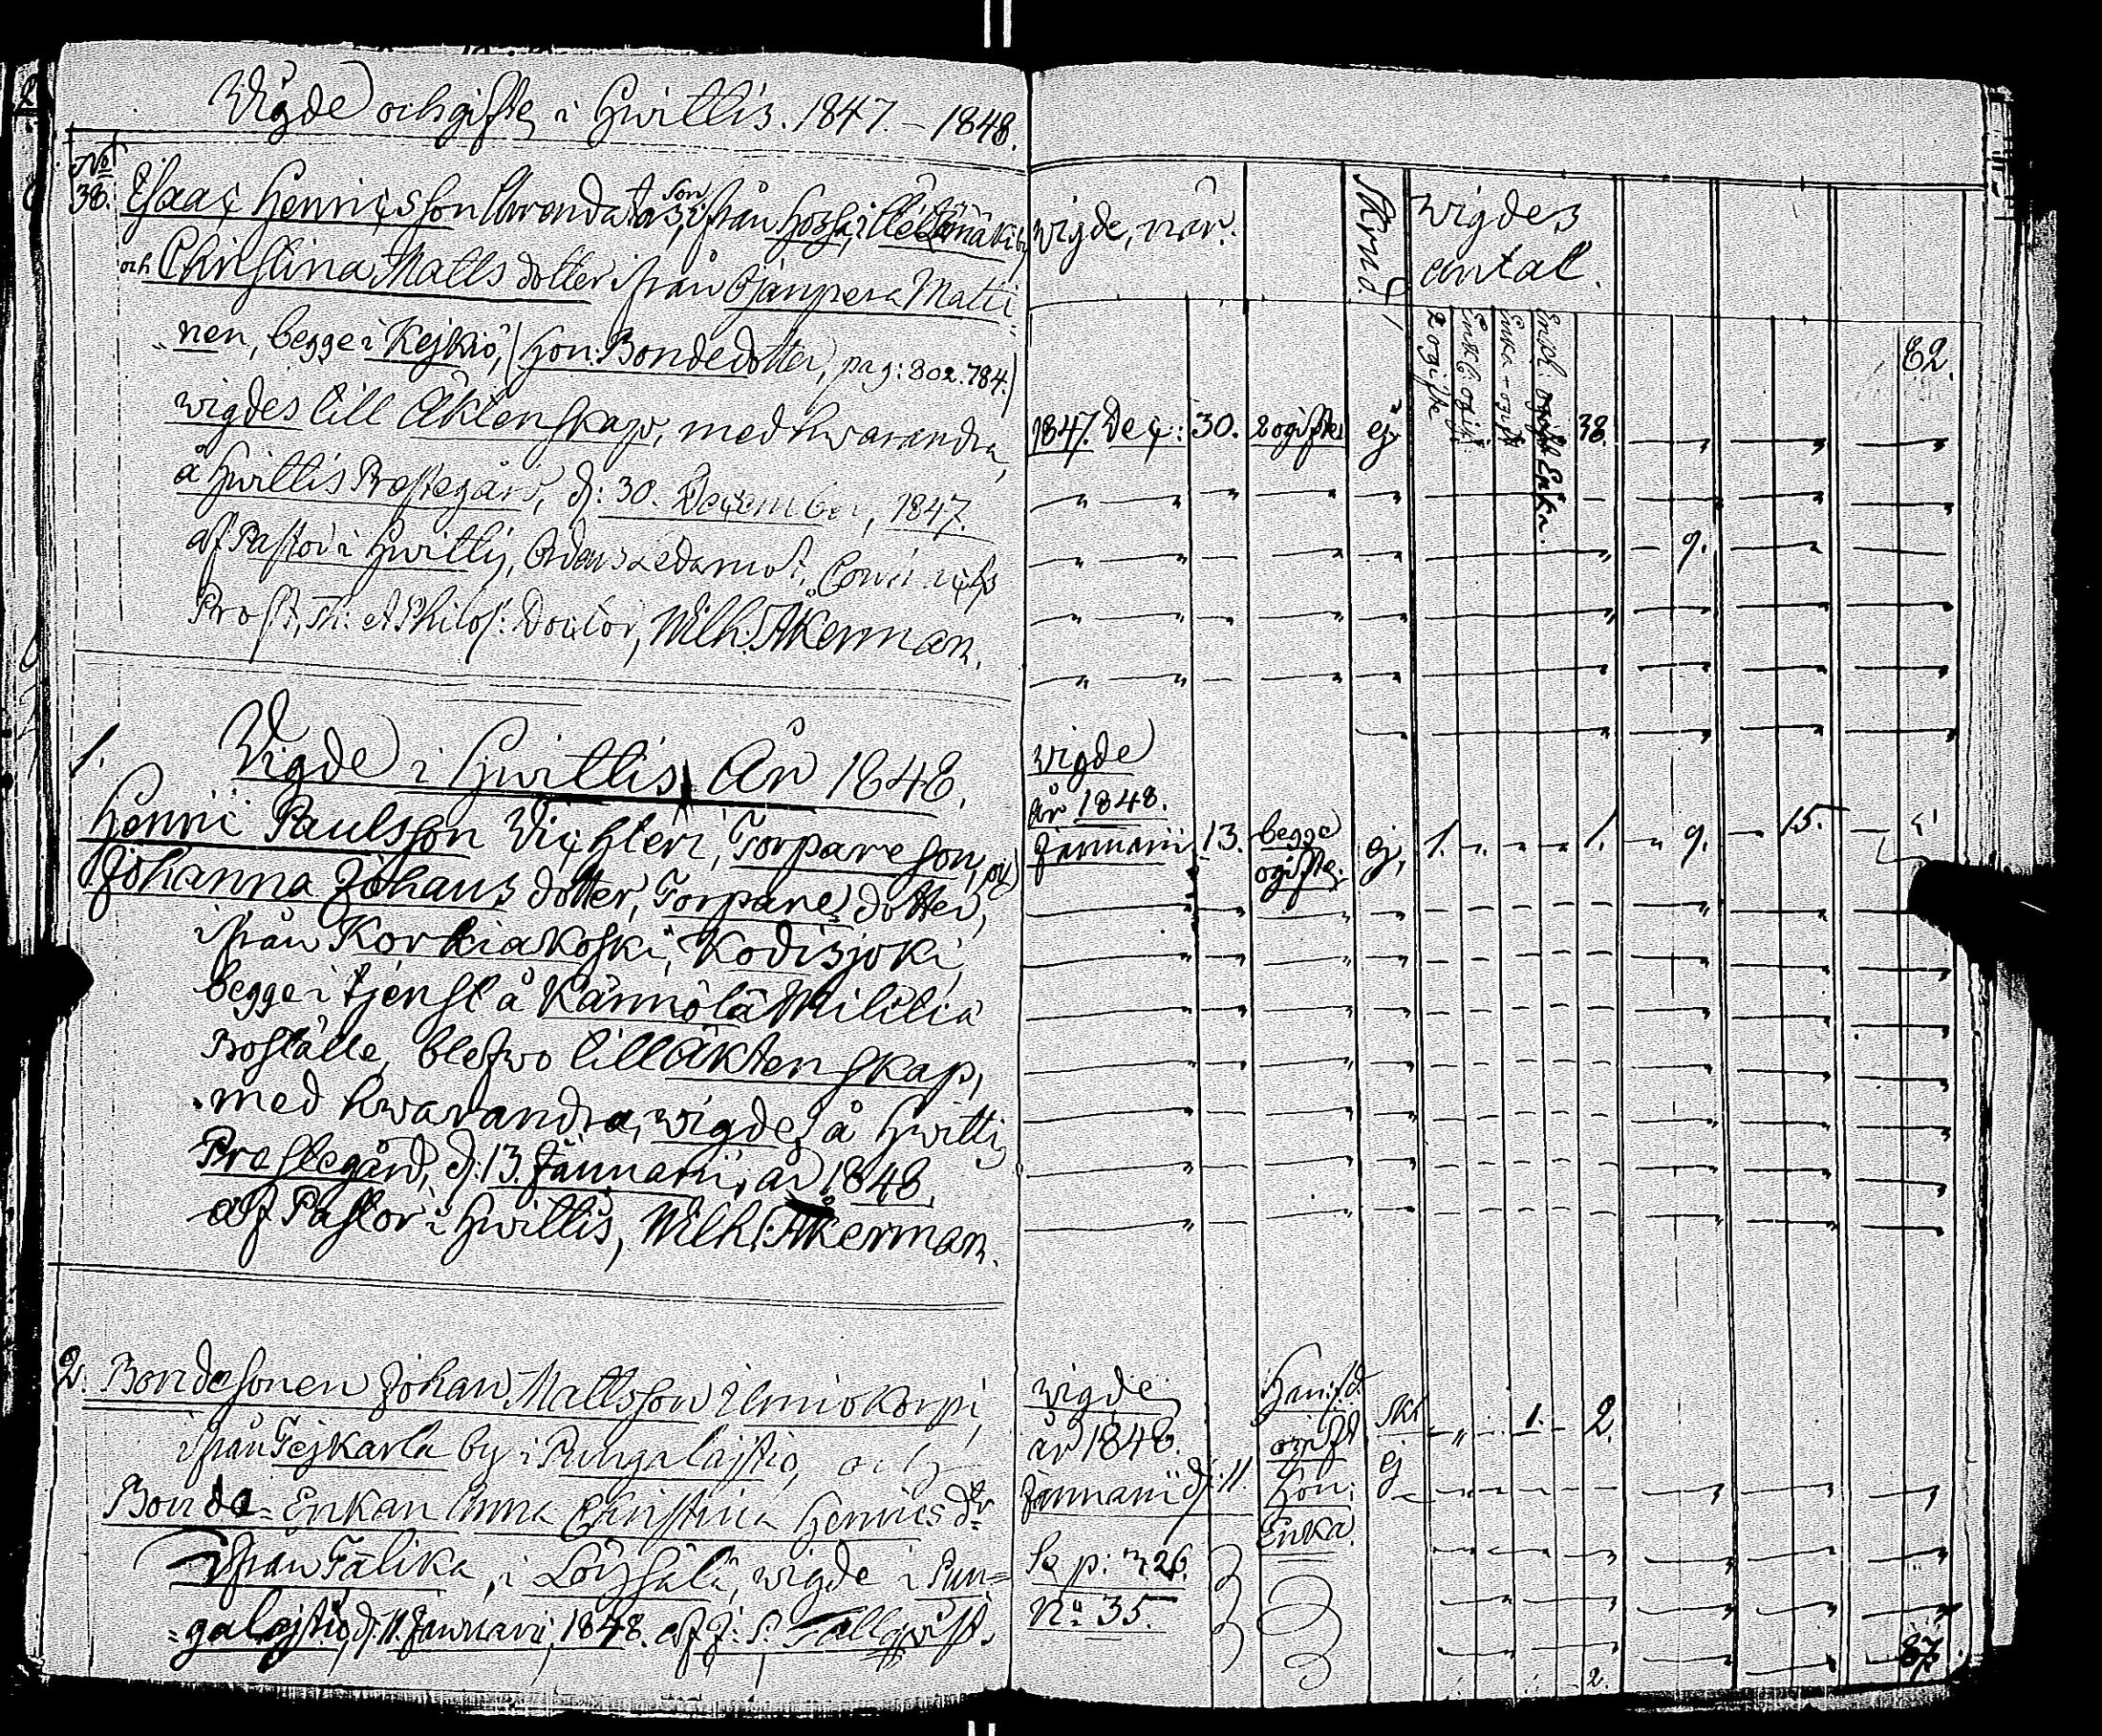 Wigde och gifte i Hwittis. 1847. – 1848.
No
38. Esaaç Henriçsson Arendators son, ifrån Hossa, i
och Christina Matts dotter ifrån Ojanpera Matti-
nen, begge i Kejkiö, (hon: Bondedotter, pag: 802. 784.)
wigdes till Äktenskap, med hwarandra,
å Hwittis Prestegård, d: 30. December, 1847.
af Pastor i Hwittis, Ordens Ledamot,
Prost, Th: et Philos: Doctor, Wilh: Åkerman.
1. Wigde i Hwittis År 1848.
Henric Paulsson Viçhteri, Torpareson, och
Johanna Johans dotter, Torpare dotter,
ifrån Korkiakoski, Kodisjoki,
begge i tjenst å Kännölä Militiæ
Boställe, blefwo till äktenskap,
med hwarandra, wigde, å Hwittis
Prestegård, d: 13. Januarii, år 1848.
af Pastor i Hwittis, Wilh: Åkerman.
2. Bondesonen Johan Mattsson Ilmiokorpi,
ifrån Tejkarla by i Pungalajtio, och
Bonde-Enkan Anna Christina Henrics dr
ifrån Talika, i Loysälä, wigde i Pun-
galajtio, d: 11. Januarii, 1848. af J: S: Tallqvist.
wigde, når.
wigdes
antal.
2 ogifte
Enkl. ogift
Enka - ogift
Enkl. ogift Enka.
82.
1847. Deç: 30. 2 ogifte ej 38.
9.
wigde
år 1848.
Januarii 13. begge
ogifte. ej, 1. 1. 9. 15.
wigde
år 1848.
Januarii d: 11.
Se p: 326.
No 35.
Han:
ogift
Hon:
Enka.
ej
1. 2.
2.